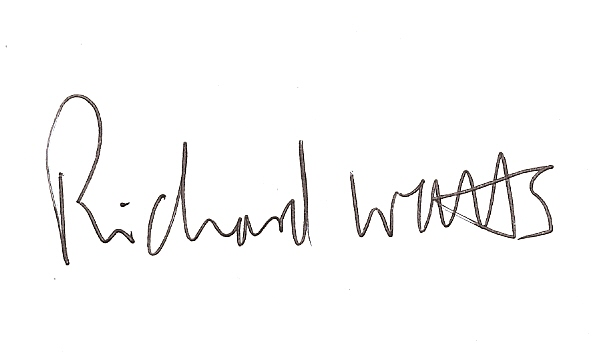 Richard Watts